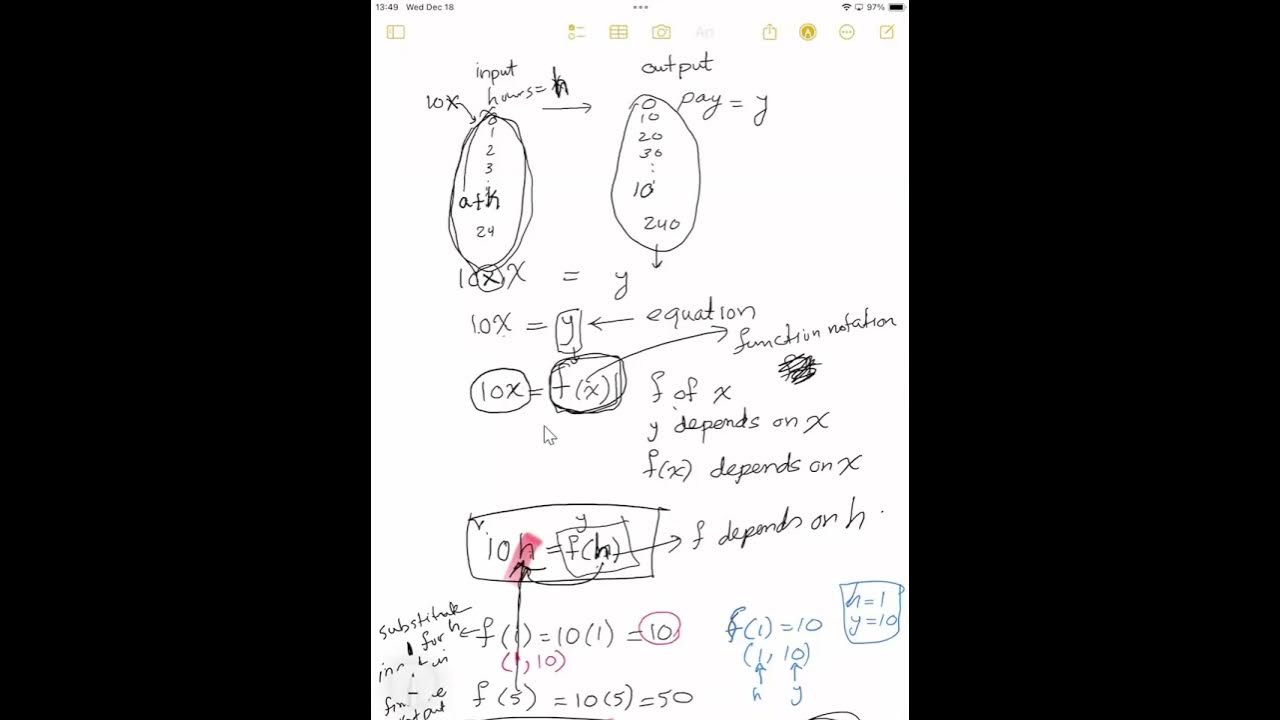 13:49 Wed Dec 18
97%
input
output
10x
hours = h
pay = y
0
1
2
3
a+h
24
0
10
20
30
10
240
10x = y
10x = y ← equation
function notation
10x = f(x)
f of x
y depends on x
f(x) depends on x
y
10h = f(h) → f depends on h.
substitute
1 for h
f(1) = 10(1) = 10
(1, 10)
f(1) = 10
(1, 10)
h y
h = 1
y = 10
f(5) = 10(5) = 50